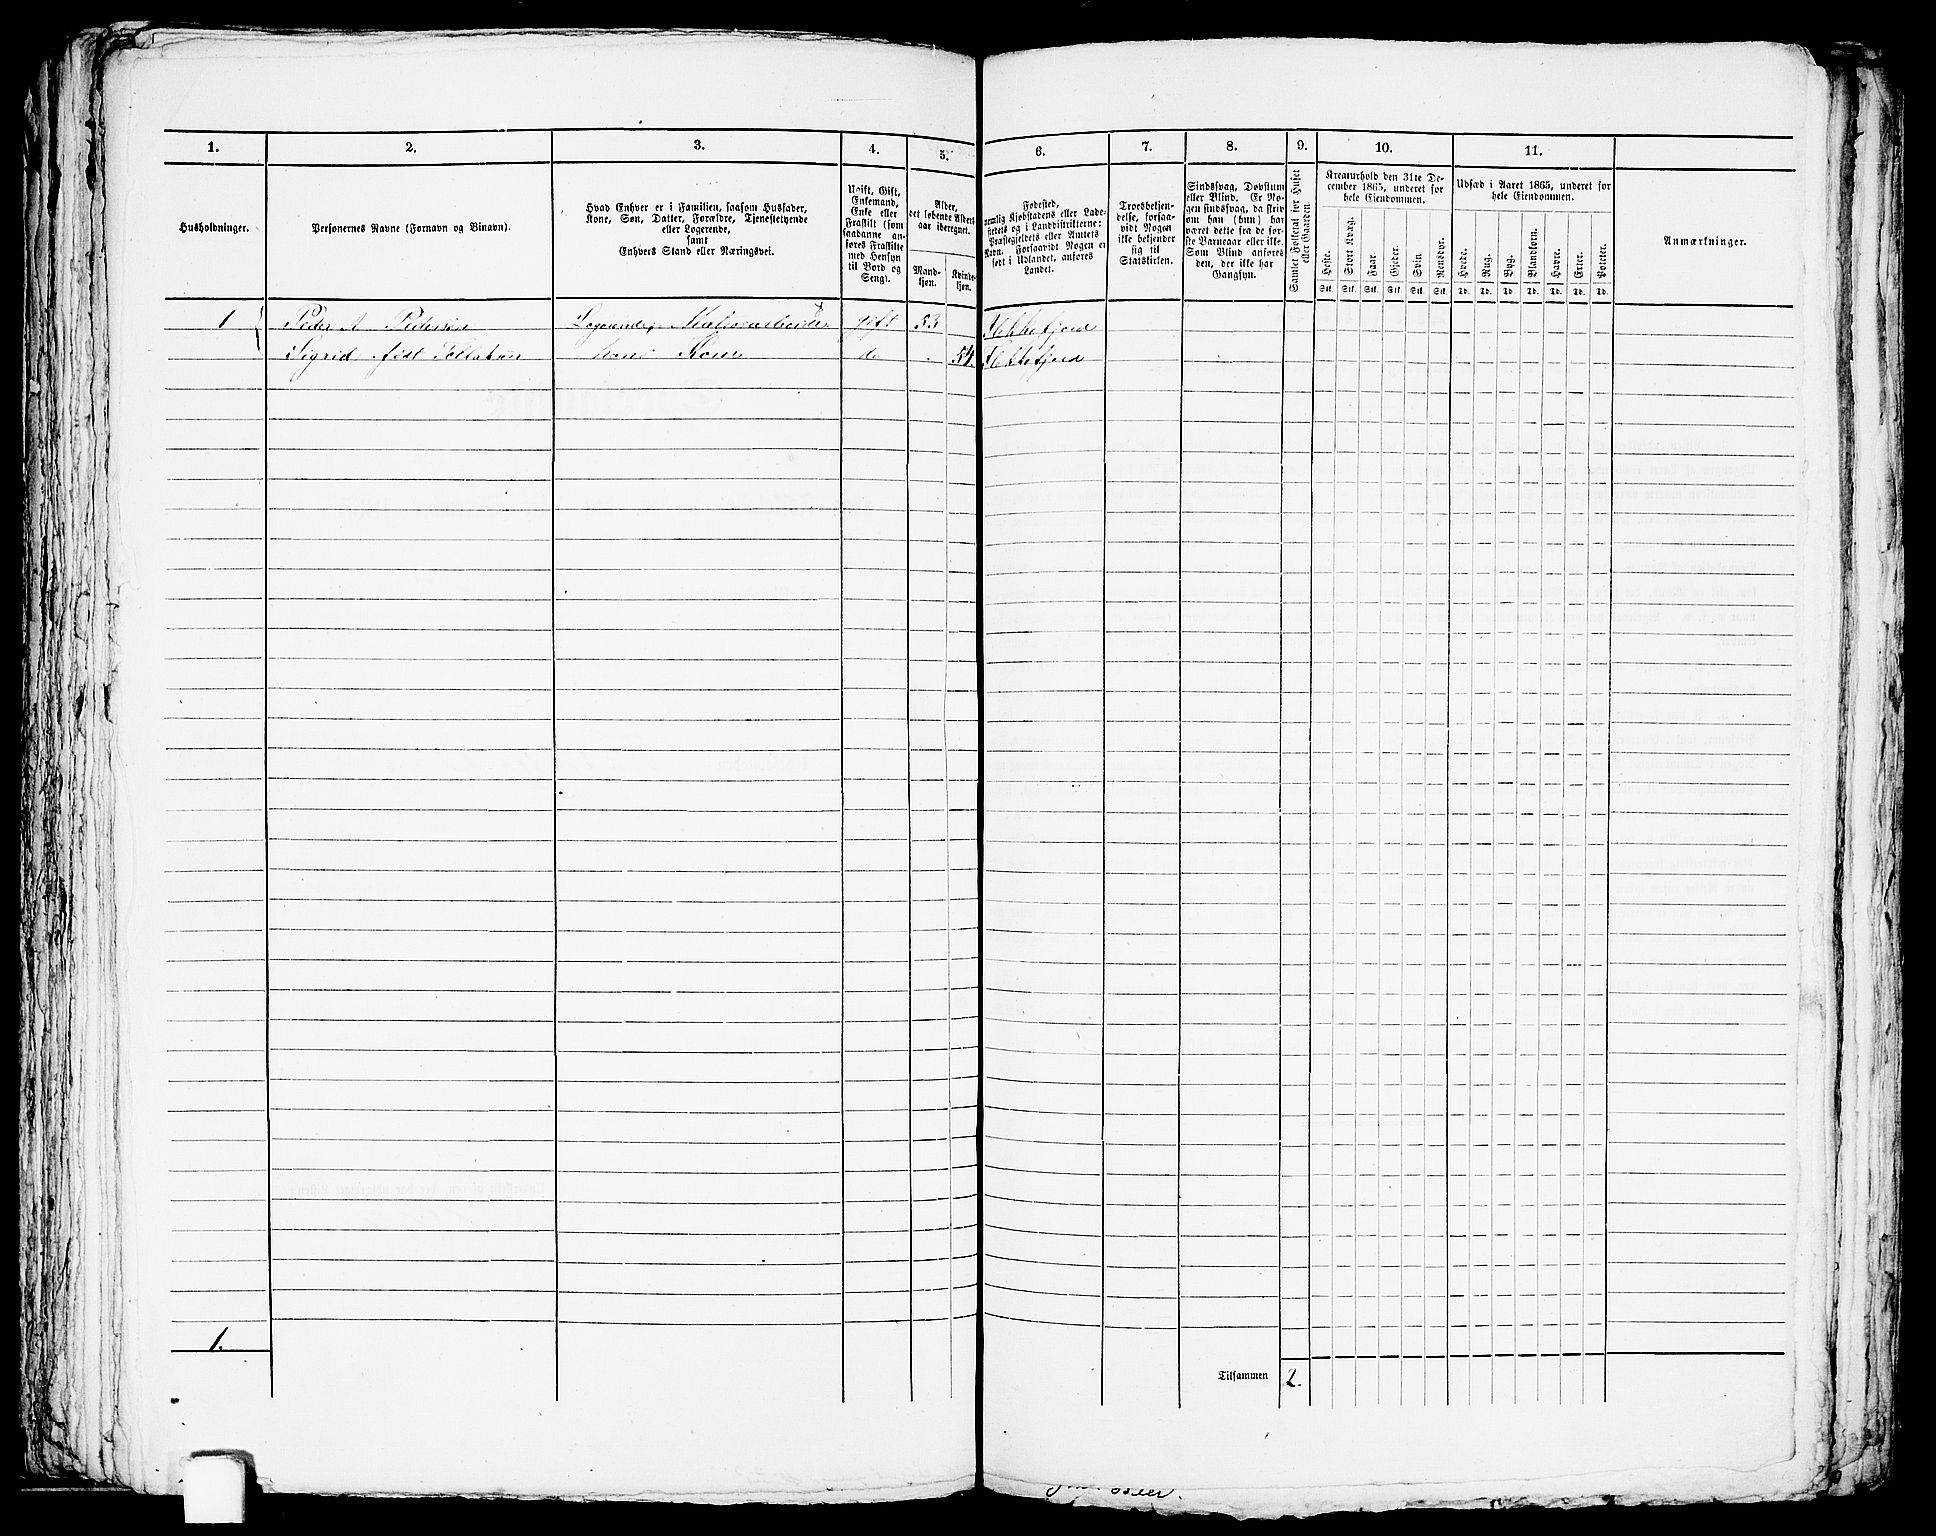 1. 2. 3. 4. 5. 6. 7. 8. 9. 10. 11.
Husholdninger.
Personernes Navne (Fornavn og Binavn).
Hvad Enhver er i Familien, saasom Husfader,
Kone, Søn, Datter, Forældre, Tjenestetyende
eller Logerende,
samt
Enhvers Stand eller Næringsvei.
Ugift, Gift,
Enkemand,
Enke eller
Fraskilt (som
saadanne an-
føres Fraskilte
med Hensyn
til Bord og
Seng).
Alder,
det løbende Alders-
aar iberegnet.
Mand-
kjøn.
Kvinde-
kjøn.
Fødested,
nemlig Kjøbstadens eller Lade-
stedets og i Landdistrikterne:
Præstegjeldets eller Amtets
Navn. Forsaavidt Nogen er
født i Udlandet, anføres
Landet.
Troesbekjen-
delse, forsaa-
vidt Nogen
ikke bekjender
sig til
Statskirken.
Sindssvag, Døvstum
eller Blind. Er No-
gen sindssvag, da skriv
om han (hun) har
været dette fra de før-
ste Barneaar eller ikke.
Som Blind anføres
den, der ikke har
Gangsyn.
Samlet Folketal for Huset
eller Gaarden.
Kreaturhold den 31te De-
cember 1865, underet for
hele Eiendommen.
Heste. Stort Kvæg. Faar. Gjeder. Svin. Rensdyr.
Stk. Stk. Stk. Stk. Stk. Stk.
Udsæd i Aaret 1865, underet for
hele Eiendommen.
Hvede. Rug. Byg. Blandkorn. Havre. Erter. Poteter.
Td. Td. Td. Td. Td. Td. Td.
Anmærkninger.
1 Peder A Pedersen Logerende gift 53 Flekkefjord
Sigrid født Kone do 54. Flekkefjord
1.
Tilsammen 2.